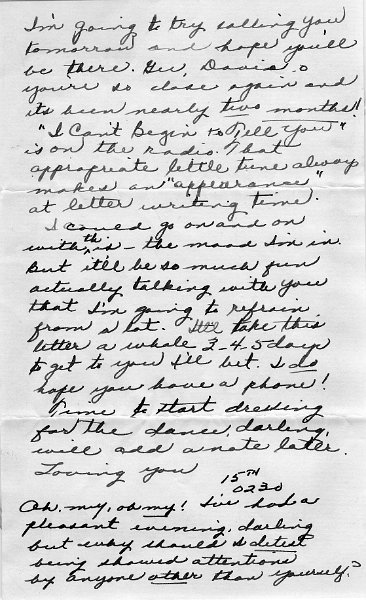 I'm going to try calling you
tomorrow and hope you'll
be there. Gee, Davis,
you're so close again and
its been nearly two months!
"I Can't Begin to Tell You"
is on the radio. That
appropriate little tune always
makes an "appearance"
at letter writing time.
I could go on and on
with this - the mood I'm in.
But it'll be so much fun
actually talking with you
that I'm going to refrain
from a lot. It'll take this
letter a whole 3-4-5 days
to get to you I'll bet. I do
hope you have a phone!
Time to start dressing
for the dance, darling,
will add a note later.
Loving you
15TH
0230
Oh, my, oh my! I've had a
pleasant evening, darling
but why should I detest
being showed attentions
by anyone other than yourself?